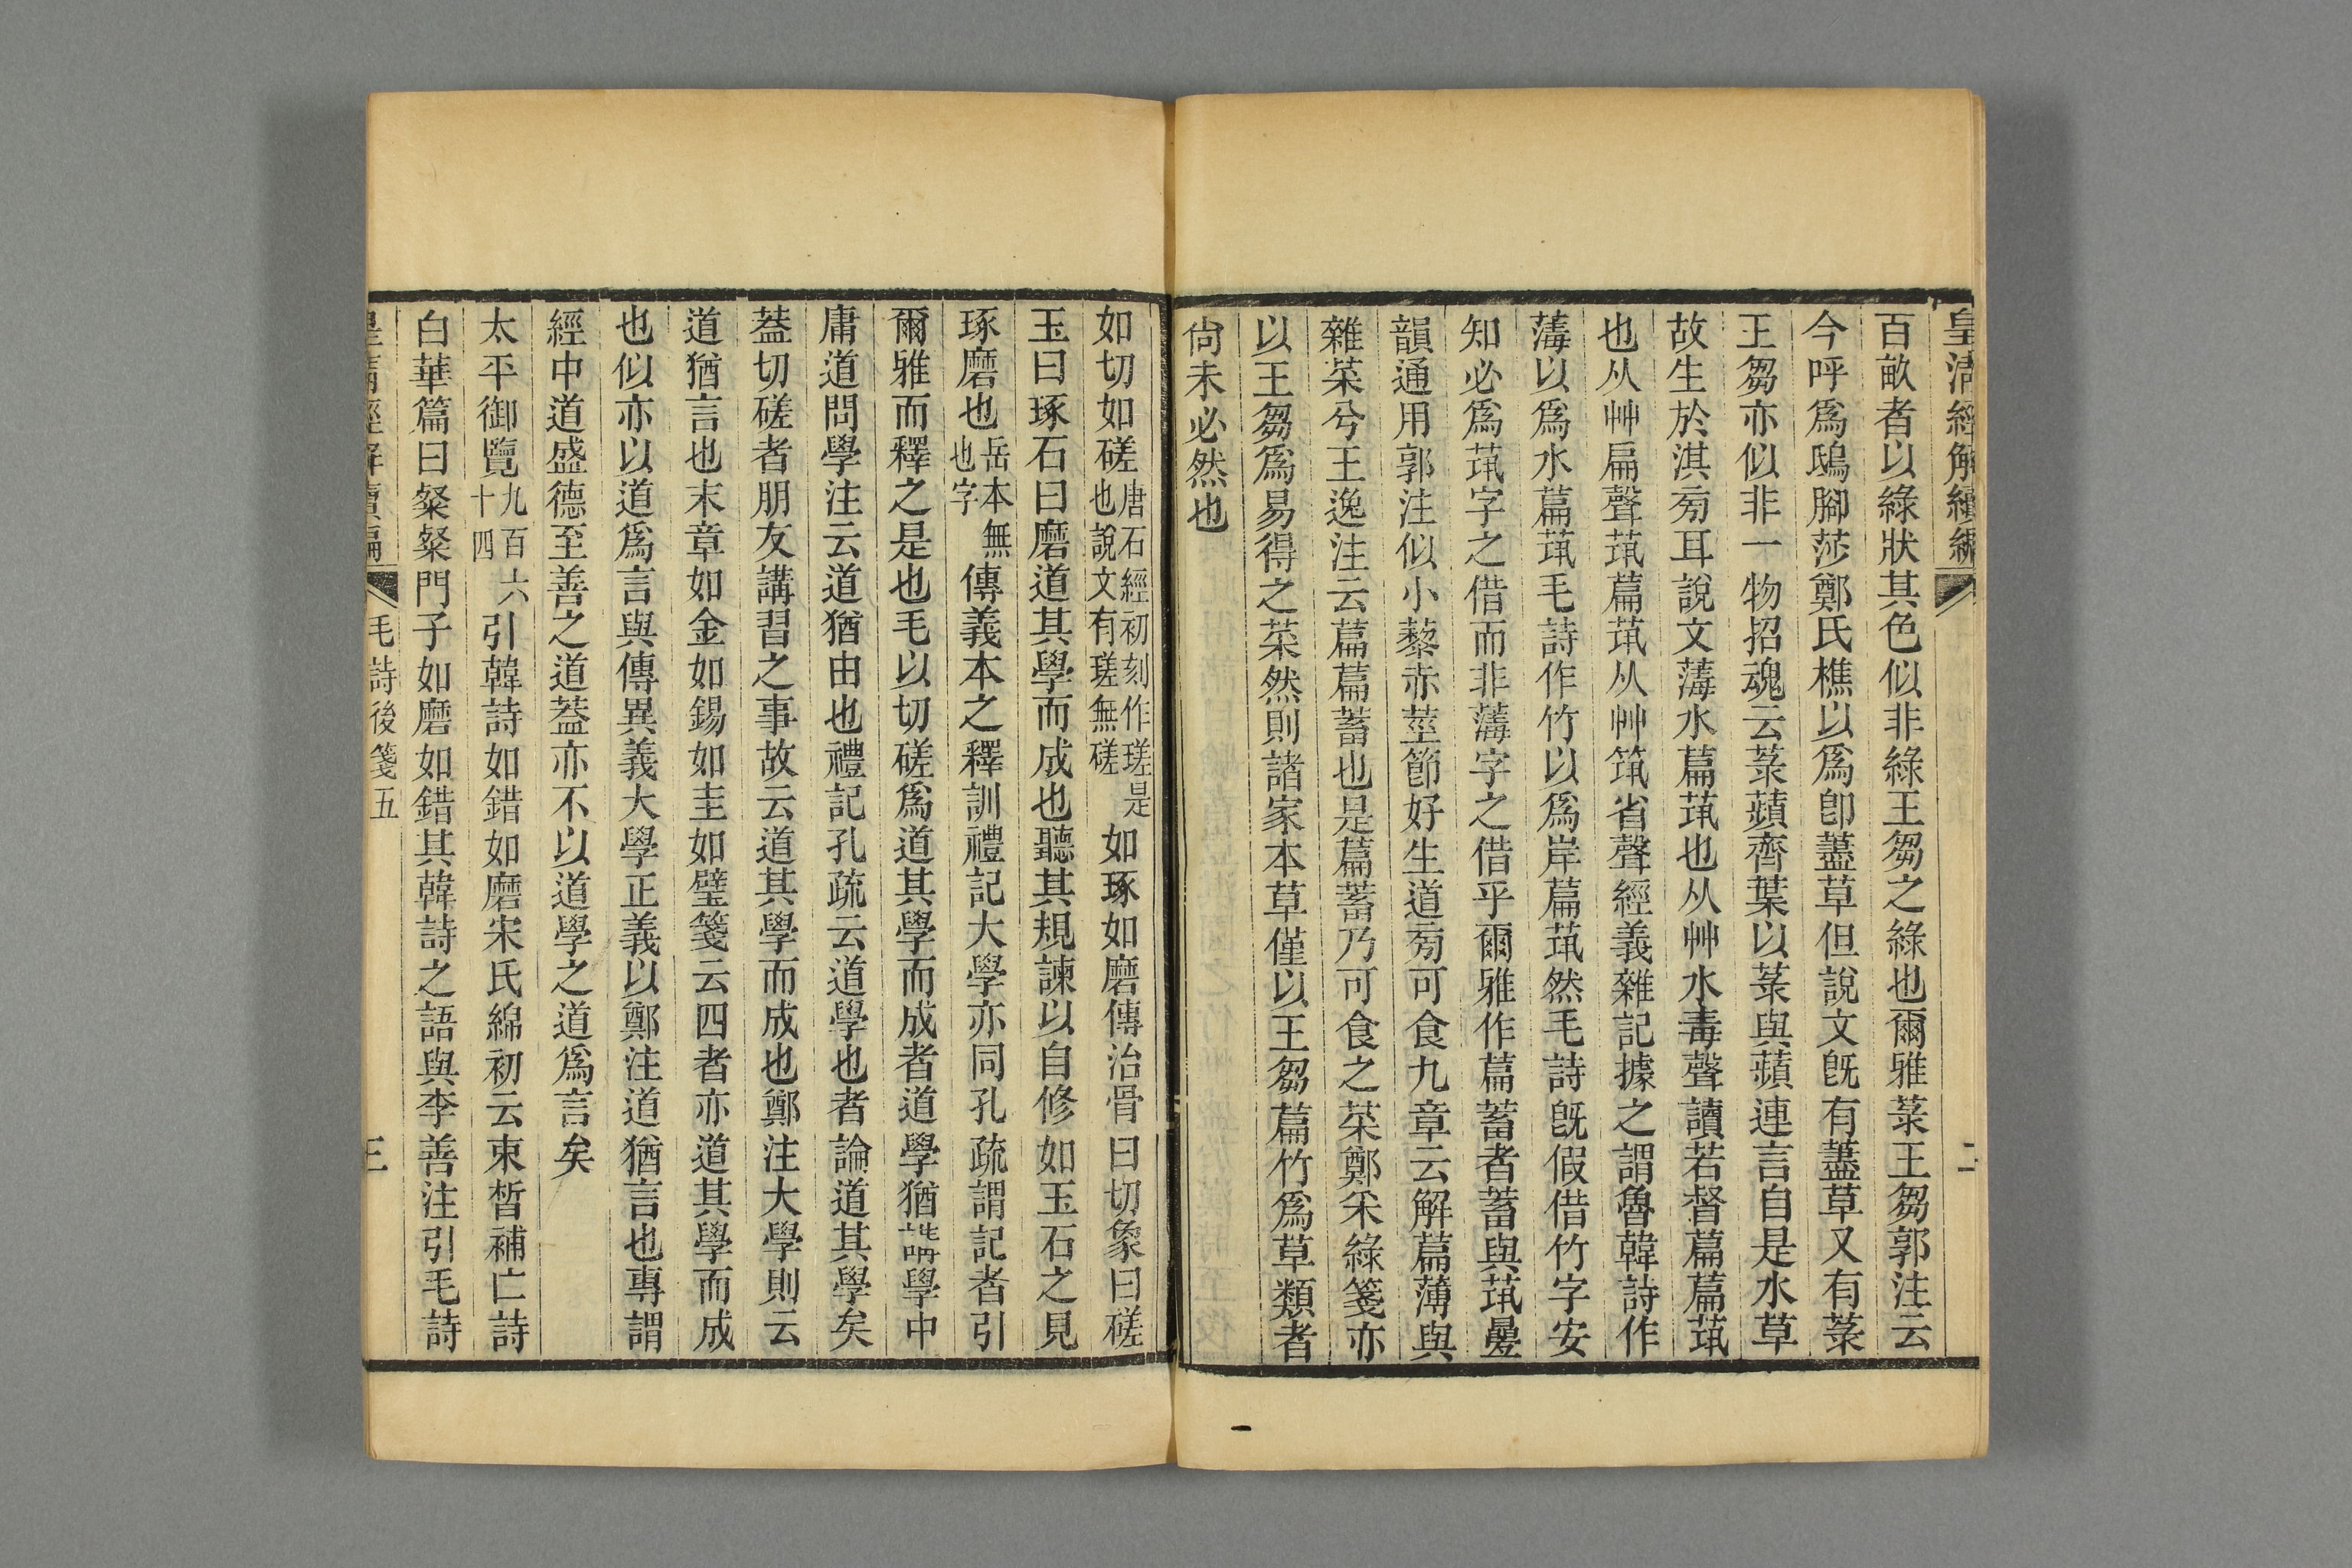 皇清經解續編 二
百畝者以綠狀其色似非綠王芻之綠也爾雅菉王芻郭注云
今呼爲鴟腳莎鄭氏樵以爲卽藎草但說文旣有藎草又有菉
王芻亦似非一物招魂云菉蘋齊葉以菉與蘋連言自是水草
故生於淇㫄耳說文薄水萹茿也从艸水毒聲讀若督萹萹茿
也从艸扁聲茿萹茿从艸筑省聲經義雜記據之謂魯韓詩作
薄以爲水萹茿毛詩作竹以爲岸萹茿然毛詩旣假借竹字安
知必爲茿字之借而非薄字之借乎爾雅作萹蓄者蓄與茿曡
韻通用郭注似小藜赤莖節好生道㫄可食九章云解萹薄與
雜菜兮王逸注云萹萹蓄也是萹蓄乃可食之菜鄭采綠箋亦
以王芻爲易得之菜然則諸家本草僅以王芻萹竹爲草類者
尙未必然也
如切如磋唐石經初刻作瑳是也說文有瑳無磋如琢如磨傳治骨曰切象曰磋
玉曰琢石曰磨道其學而成也聽其規諫以自修如玉石之見
琢磨也岳本無也字傳義本之釋訓禮記大學亦同孔疏謂記者引
爾雅而釋之是也毛以切磋爲道其學而成者道學猶講學中
庸道問學注云道猶由也禮記孔疏云道學也者論道其學矣
葢切磋者朋友講習之事故云道其學而成也鄭注大學則云
道猶言也末章如金如錫如圭如璧箋云四者亦道其學而成
也似亦以道爲言與傳異義大學正義以鄭注道猶言也專謂
經中道盛德至善之道葢亦不以道學之道爲言矣
太平御覽九百六十四引韓詩如錯如磨宋氏綿初云束晳補亡詩
白華篇曰粲粲門子如磨如錯其韓詩之語與李善注引毛詩
皇淸經解續編 毛詩後箋五 三